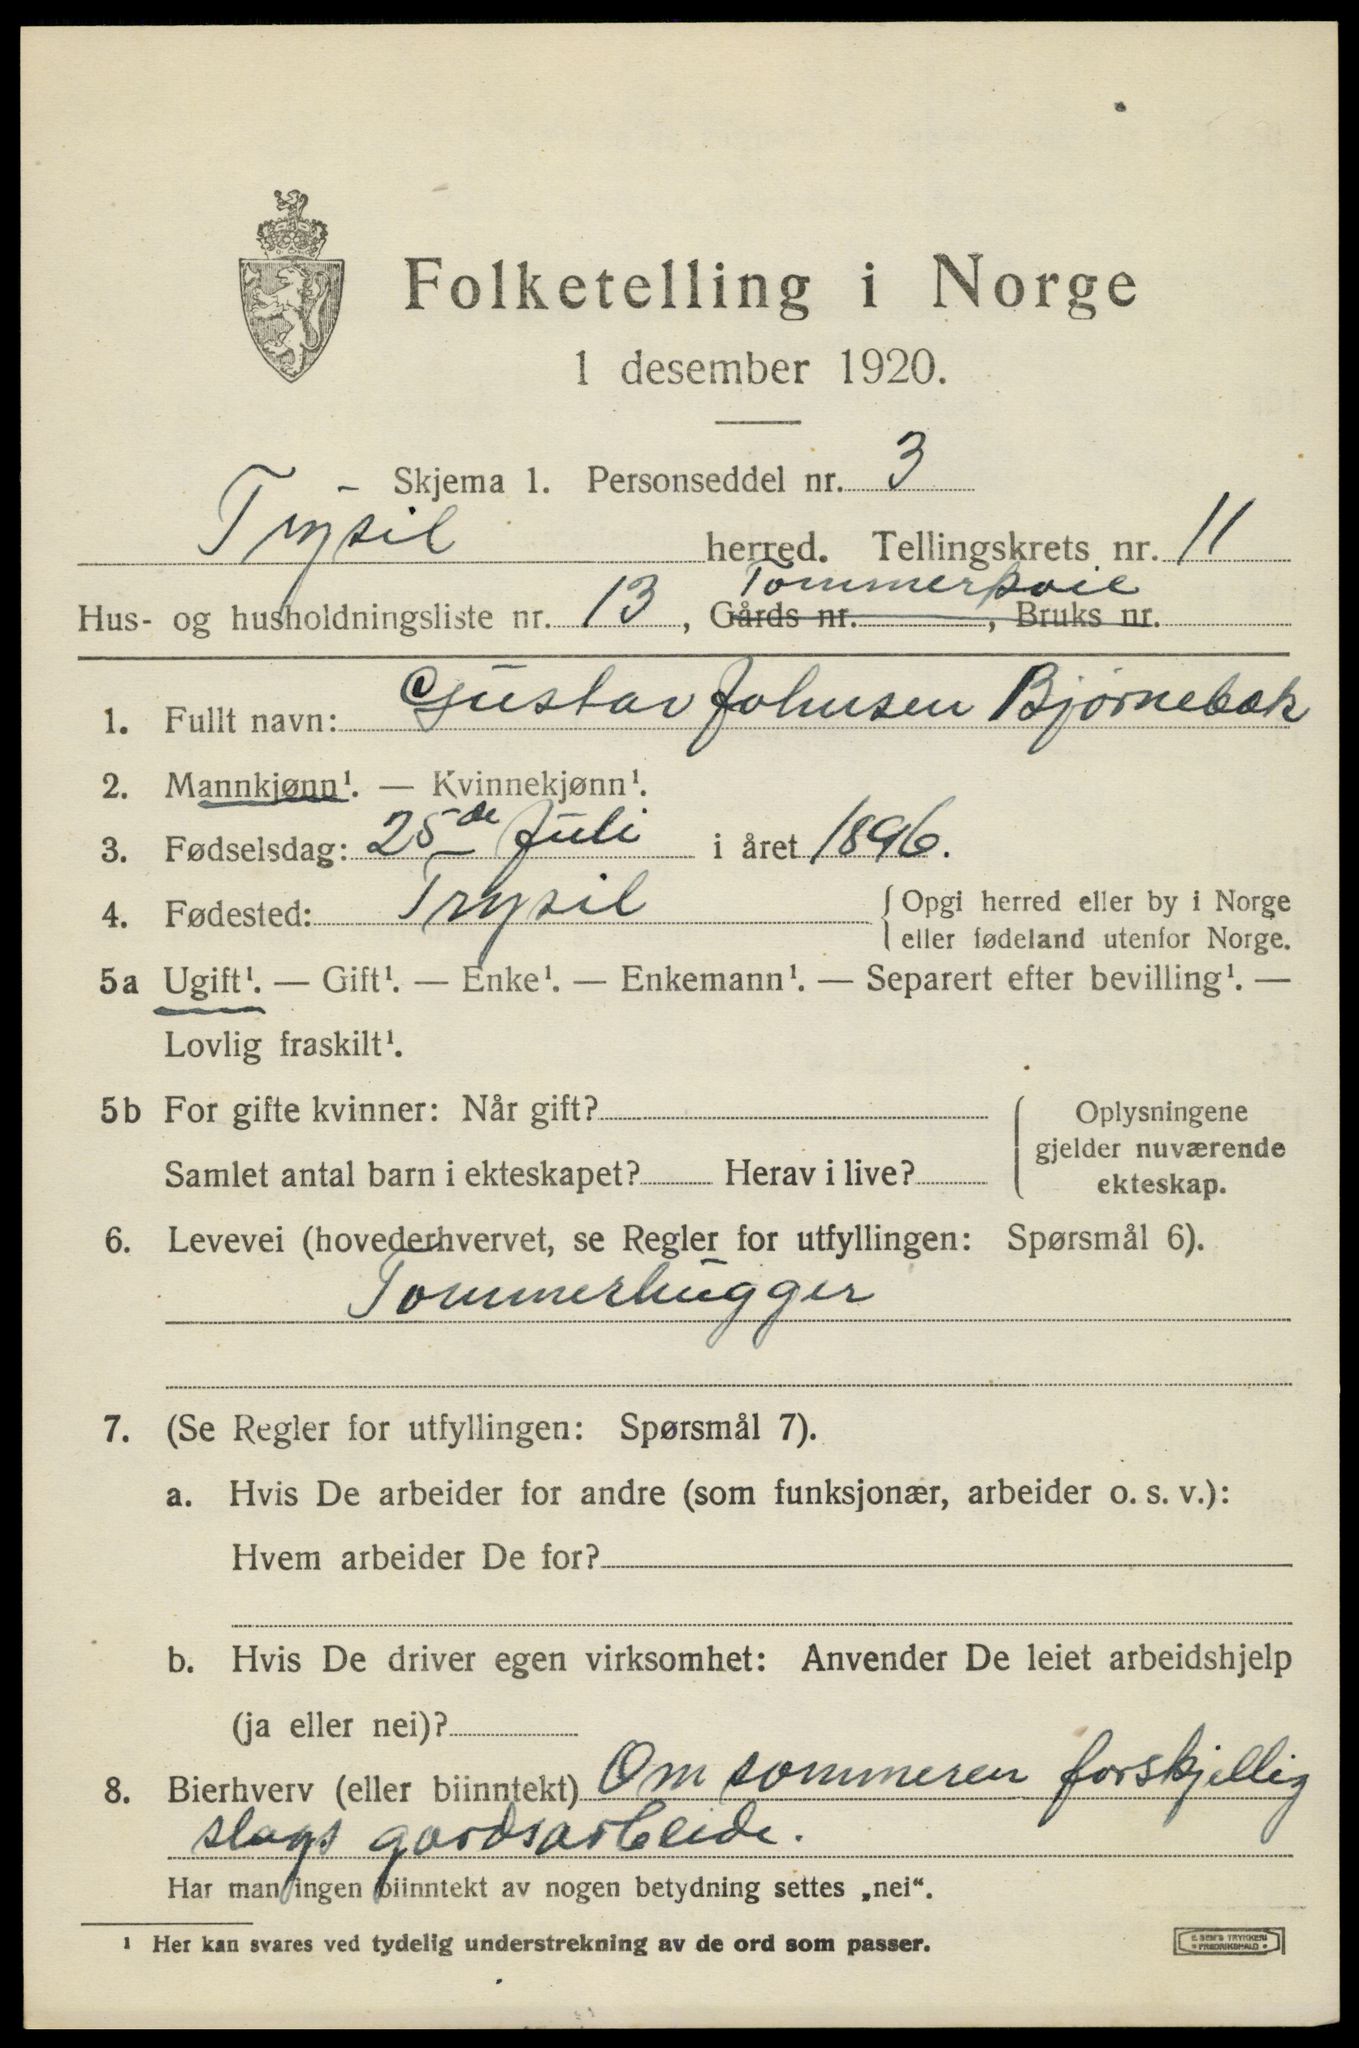 Folketelling i Norge
1 desember 1920.
Skjema 1. Personseddel nr. 3
Trysil herred. Tellingskrets nr. 11
Tømmerkoie
Hus- og husholdningsliste nr. 13, Gårds nr. , Bruks nr.
1. Fullt navn: Gustav Johnsen Bjørnebæk
2. Mannkjønn¹. — Kvinnekjønn¹.
3. Fødselsdag: 25de Juli i året 1896.
4. Fødested: Trysil { Opgi herred eller by i Norge
eller fødeland utenfor Norge.
5a Ugift¹. — Gift¹. — Enke¹. — Enkemann¹. — Separert efter bevilling¹. —
Lovlig fraskilt¹.
5b For gifte kvinner: Når gift? Oplysningene
gjelder nuværende
Samlet antal barn i ekteskapet? Herav i live? ekteskap.
6. Levevei (hovederhvervet, se Regler for utfyllingen: Spørsmål 6).
Tømmerhugger
7. (Se Regler for utfyllingen: Spørsmål 7).
a. Hvis De arbeider for andre (som funksjonær, arbeider o. s. v.):
Hvem arbeider De for?
b. Hvis De driver egen virksomhet: Anvender De leiet arbeidshjelp
(ja eller nei)?
8. Bierhverv (eller biinntekt) Om sommeren forskjellig
slags gardsarbeide.
Har man ingen biinntekt av nogen betydning settes „nei“.
¹ Her kan svares ved tydelig understrekning av de ord som passer.
E. SEM'S TRYKKERI
FREDRIKSHALD